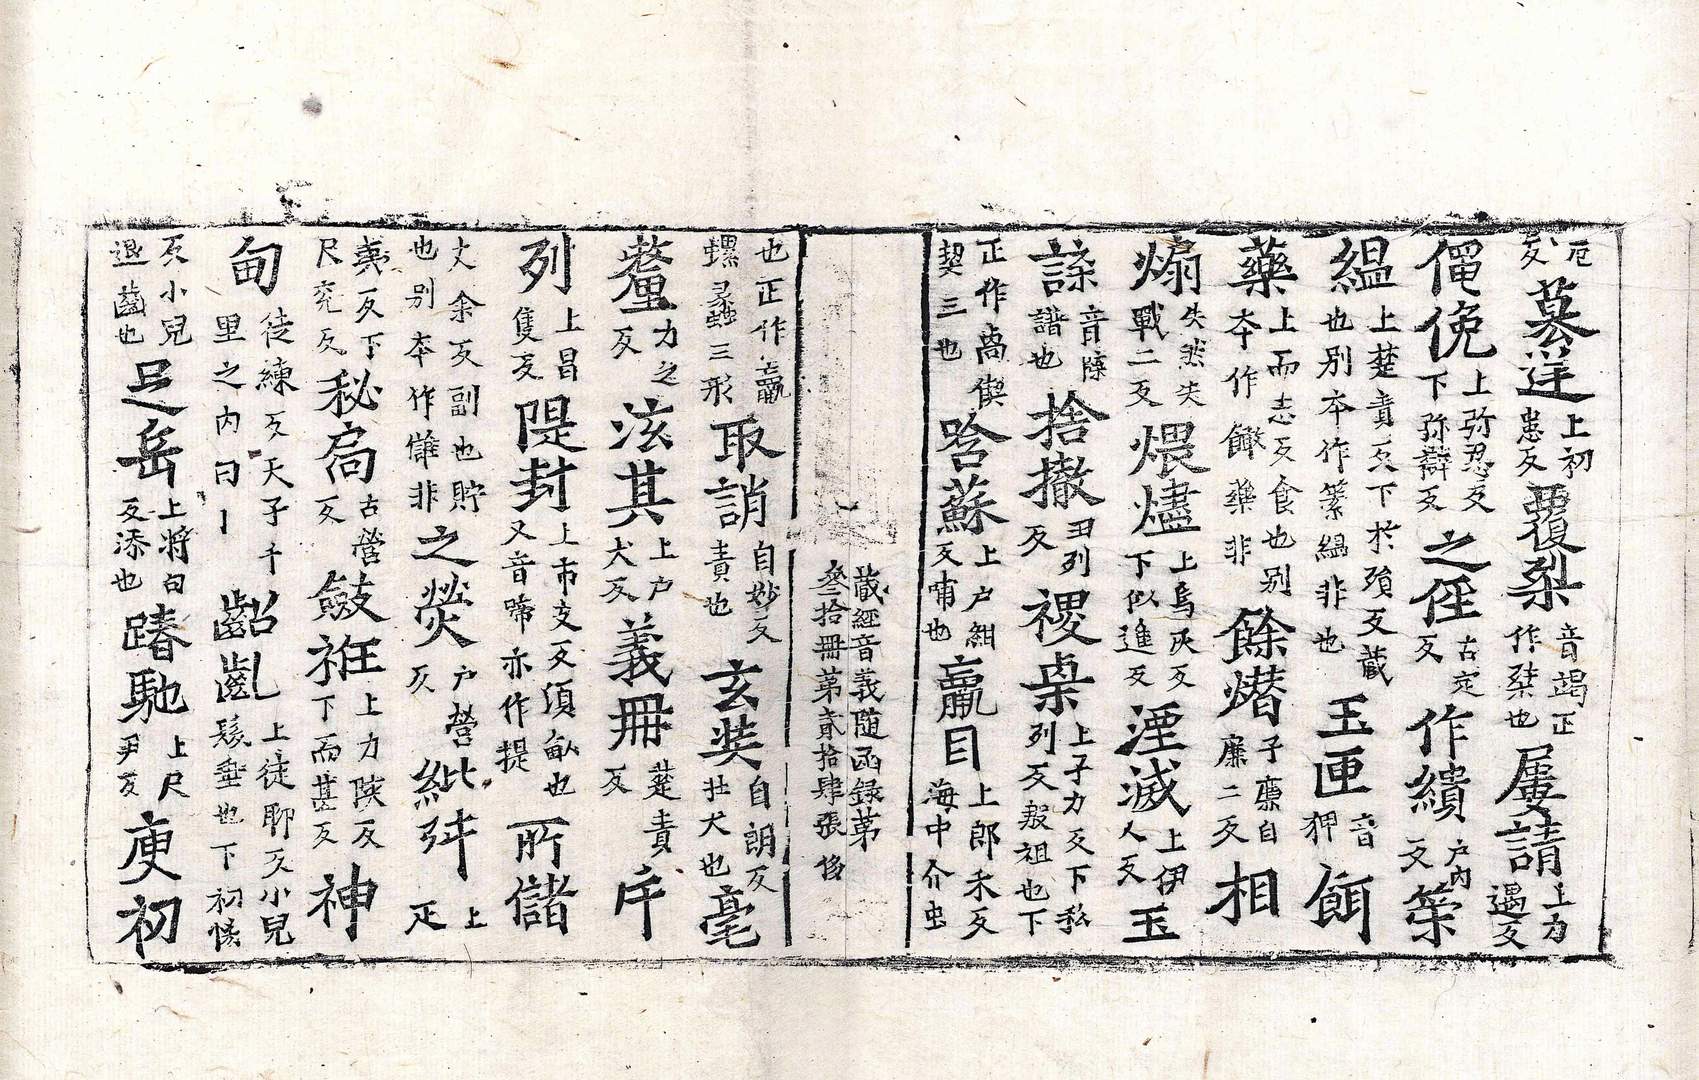 厄反墓䇦上初患反覆梨音竭正作桀也屢請上力遇反
僶俛上弥忍反下弥辯反之俓古定反作繢户內反策
緼上楚責反下於殞反藏也別夲作䋈緼非也玉匣音狎餌
藥上而志反食也別夲作饊藥非餘熸子廉自廉二反相
煽失然失戰二反煨燼上烏灰反下似進反湮滅上伊人反玉
諜音牒譜也捨撤丑列反禝桌上子力反下私列反殷祖也下
正作卨偰契三也唅蘇上户紺反哺也蠃目上郎禾反海中介虫
藏經音義随函録第
叄拾冊苐貳拾肆張 俗
也正作蠃螺蠡三形取誚自妙反責也玄奘自朗反壯犬也毫
氂力之反泫其上户犬反義冊楚責反斥
列上昌隻反隄封上市支反須畝也又音啼亦作提所儲
丈余反副也貯也別夲作儺非之熒户營反紕舛上疋
夷反下尺兖反秘扃古營反斂袵上力陝反下而甚反神
甸徒練反天子千里之內曰丨齠齓上徒聊反小兒髮垂也下初愼
反小兒退齒也足岳上將句反添也踳馳上尺尹反庾初